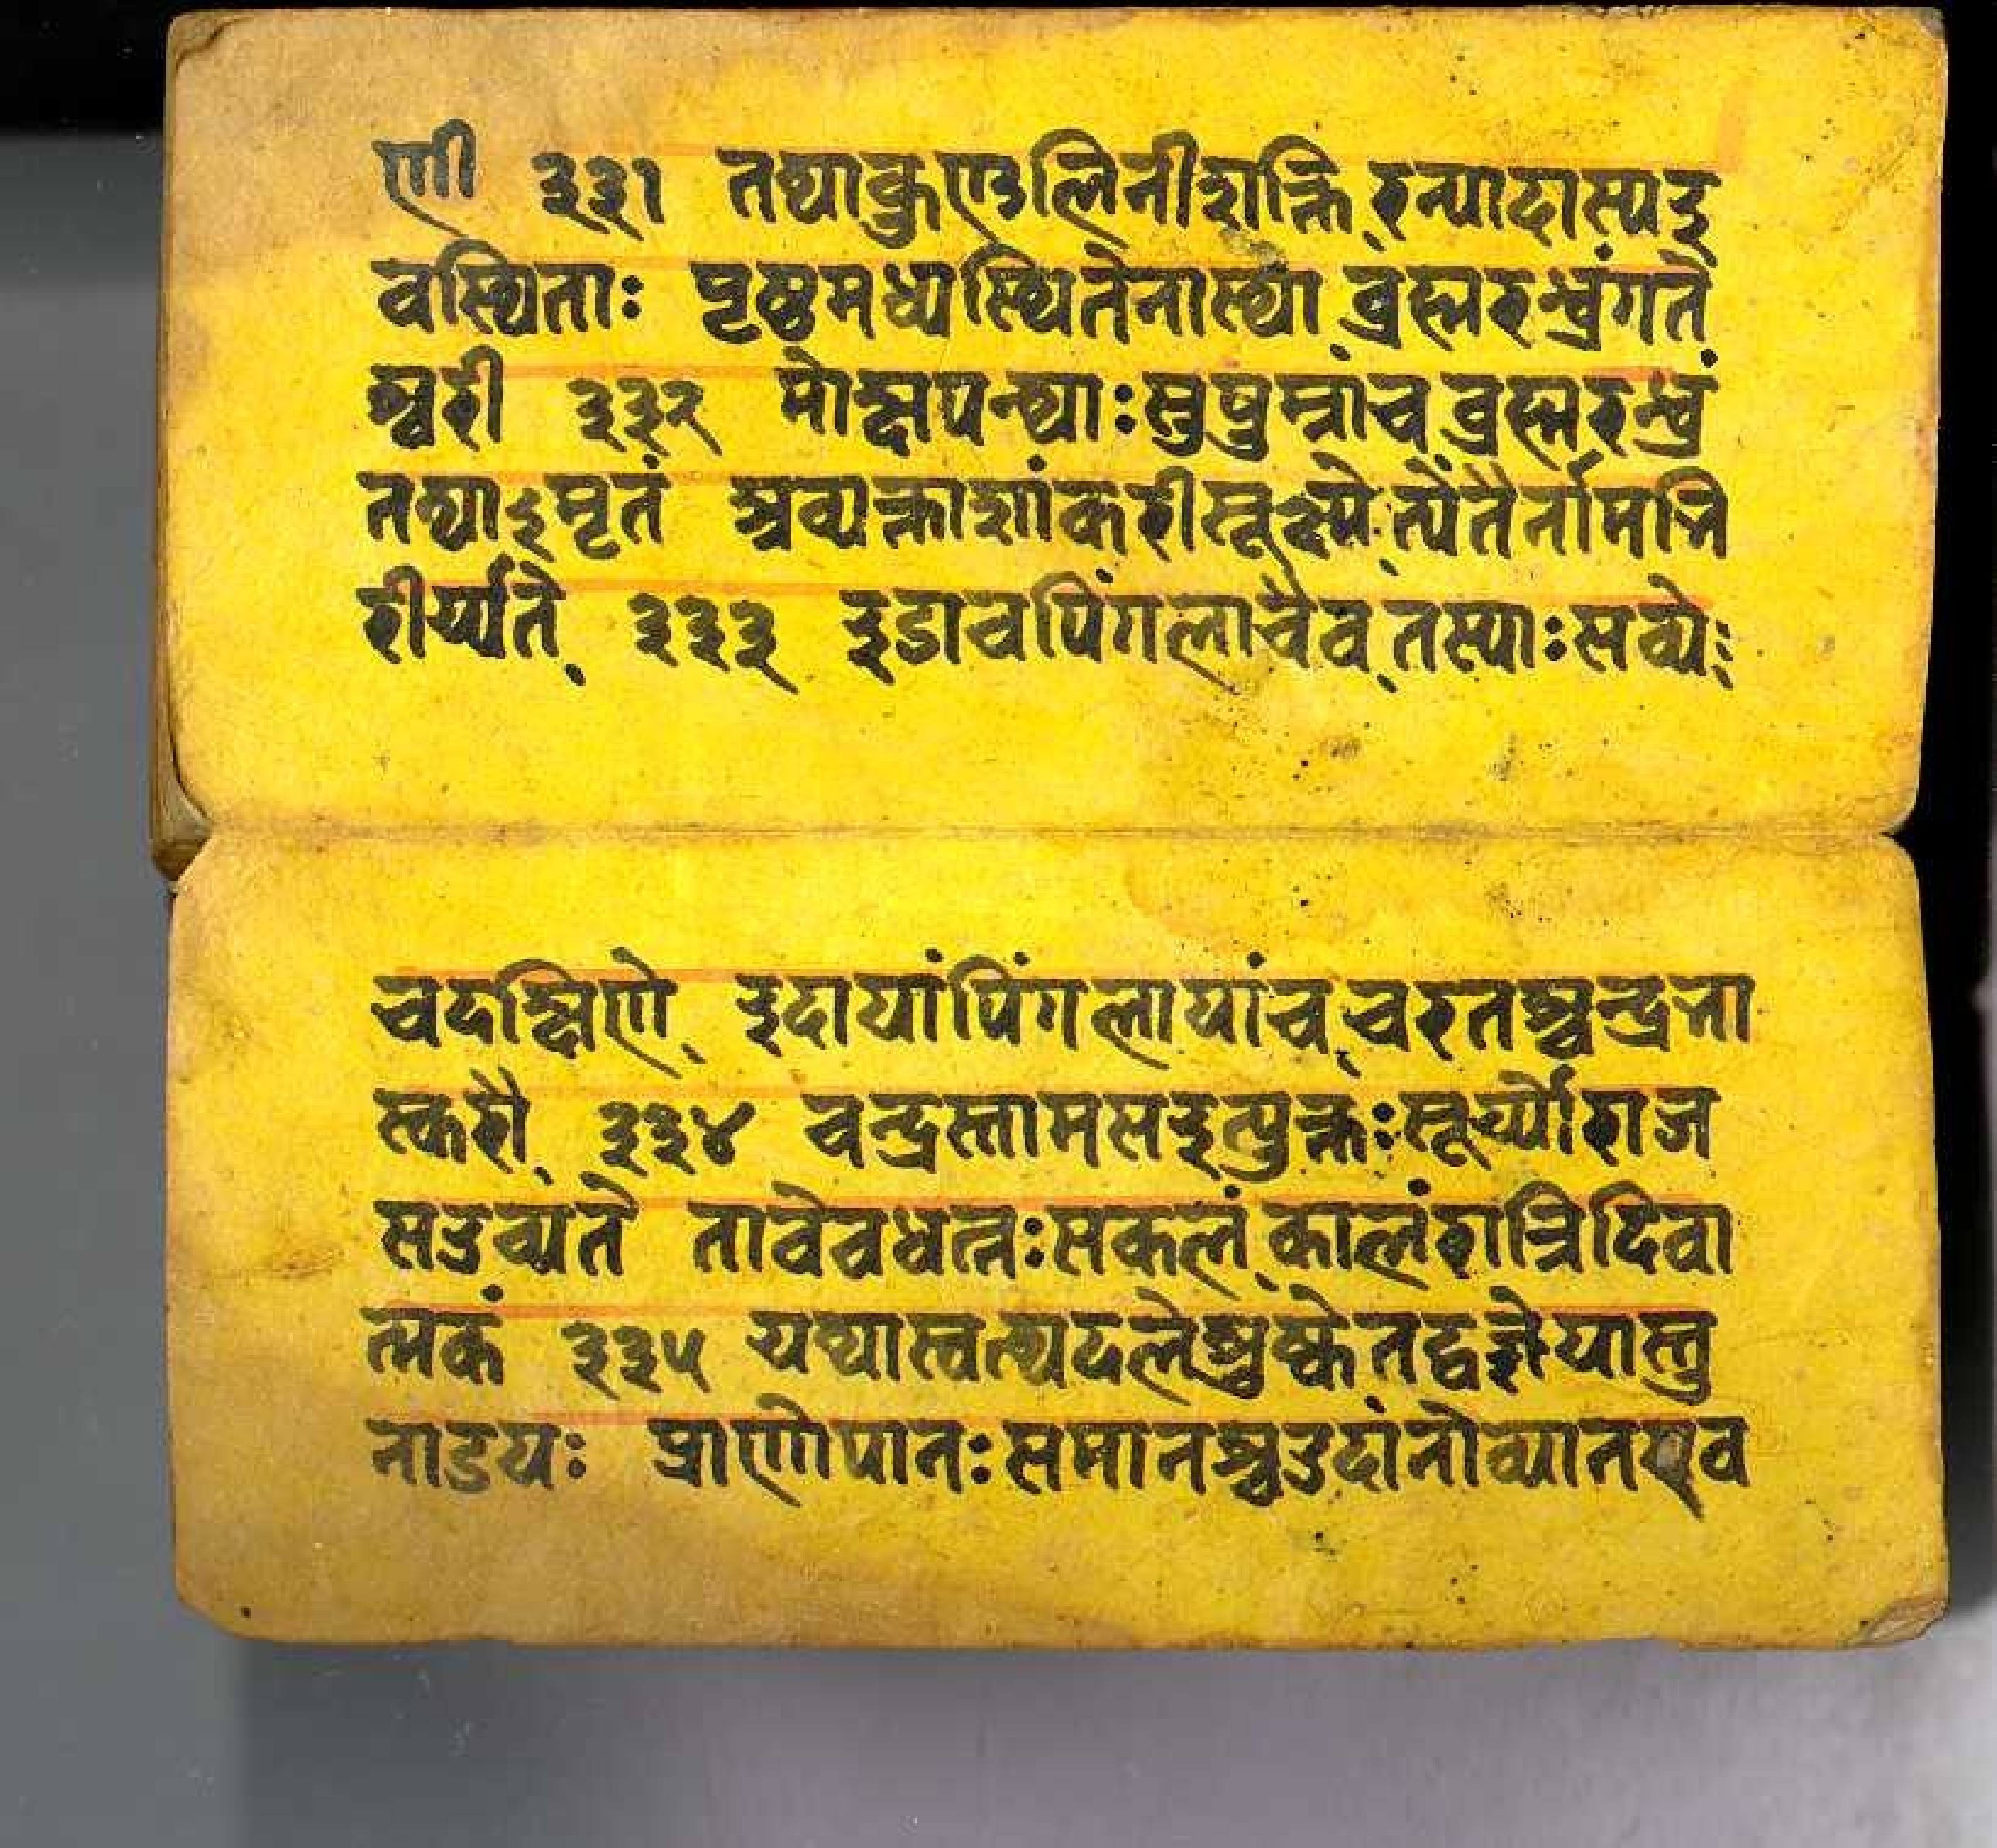 णी ३३१ तथाकुण्डलिनीशक्ति रुन्यादास्पाइ
वस्थिताः पृष्ठमध्यस्थितेनास्था ब्रह्मरुन्ध्रंगते
श्वरी ३३२ मोक्षपन्थाःसुषुम्नांच ब्रह्मरुन्ध्रं
तथाऽमृतं श्रव्यक्ताशांकरीसूक्ष्मे त्येतैर्नामभि
रीर्य्यते ३३३ इडाचपिंगलाचैव तस्याःसव्ये
चदक्षिणे इदायांपिंगलायांच चरतश्चन्द्रभा
स्करौ ३३४ चन्द्रस्तामसइत्युक्तःसूर्य्योराज
सउच्यते तावेवधत्तःसकलं कालंरात्रिदिवा
त्मकं ३३५ यथास्वत्थदलेशुष्के तद्वज्ञेयास्तु
नाडयः प्राणोपानःसमानश्चउदांनोव्यानएव